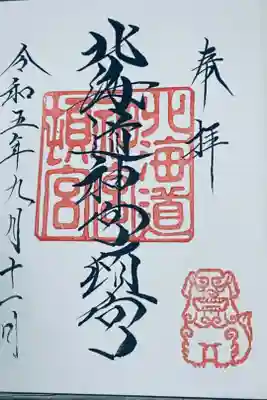 奉拝
北海道神宮頓宮
北海道神宮頓宮
令和五年九月十一日